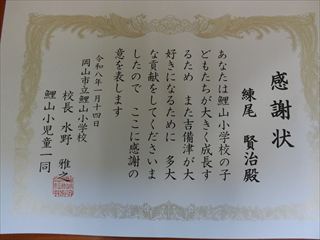 感謝状
練尾 賢治殿
あなたは鯉山小学校の子
どもたちが大きく成長す
るため また吉備津が大
好きになるために 多大
な貢献をしてくださいま
したので ここに感謝の
意を表します
令和八年一月十四日
岡山市立鯉山小学校
校長 水野 雅之
鯉山小児童一同